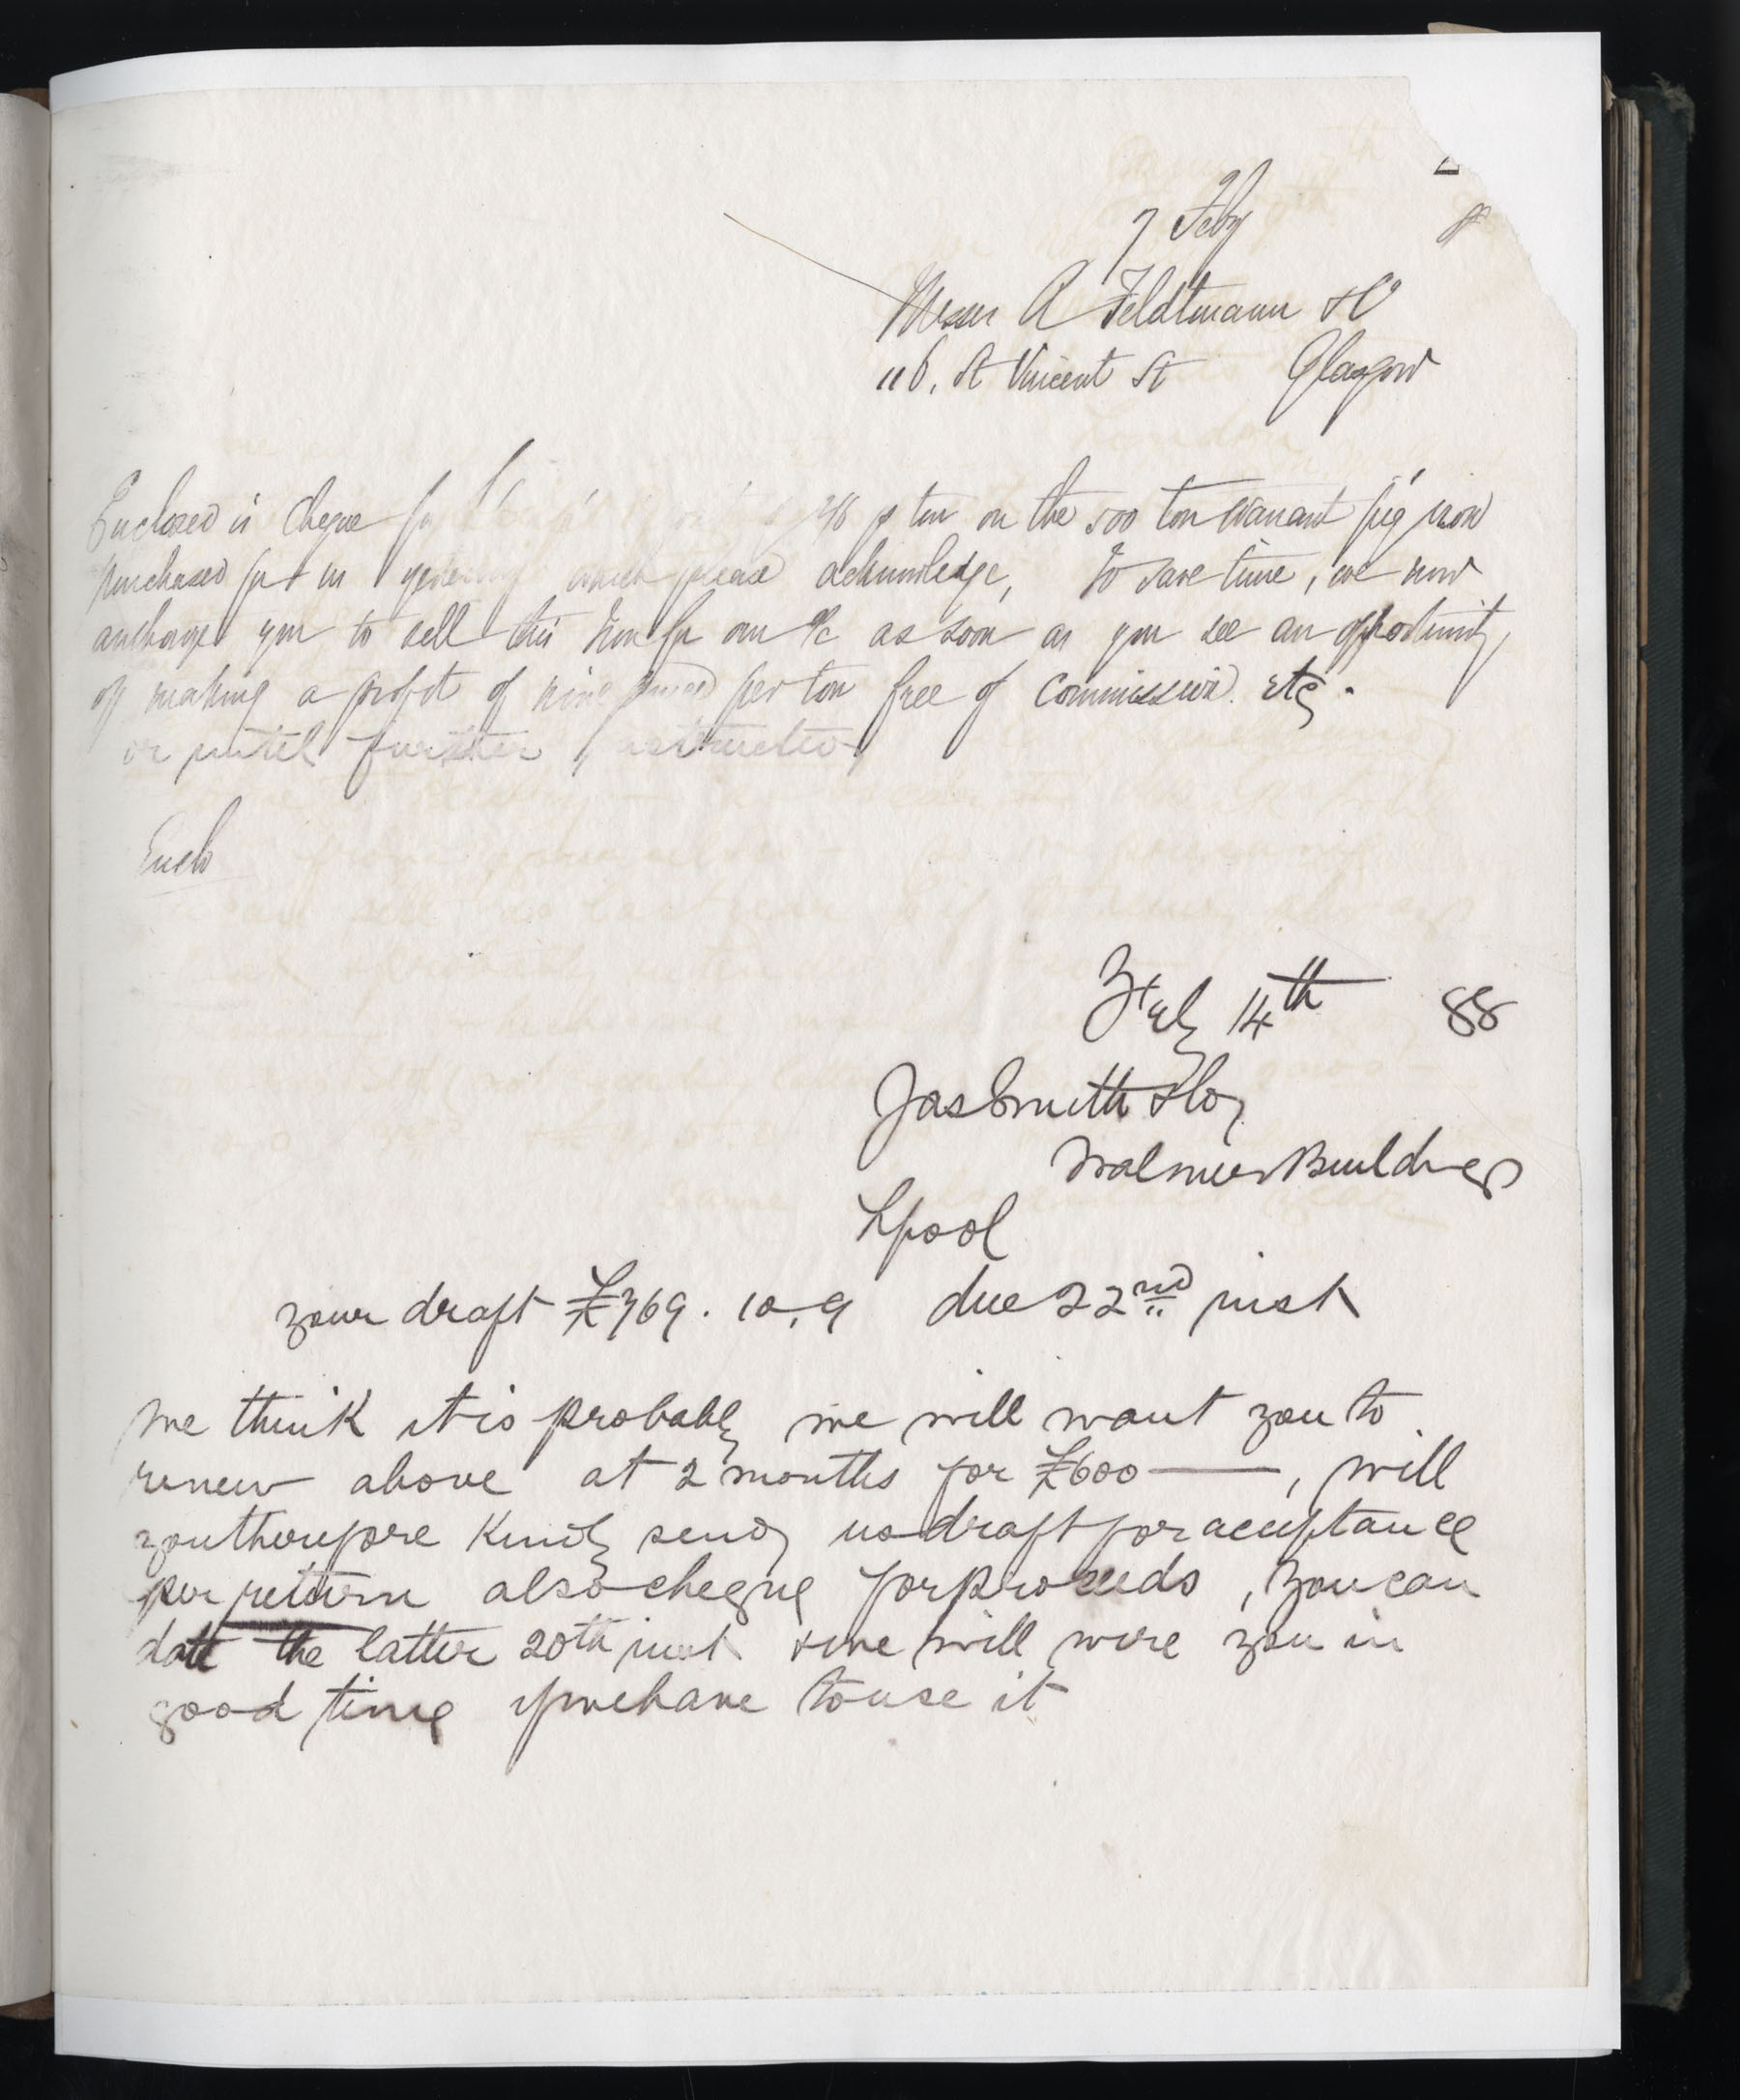 7 Feby
Messrs A Feldtmann & Co
116, St Vincent St Glasgow
Enclosed is Cheque for 2/6 p ton on the 500 ton Warrant pig iron
purchased for us yesterday which please acknowledge, To save time, we now
authorize you to sell this Iron for our a/c as soon as you see an opportunity
of making a profit of nine pence per ton free of Commission. etc.
or until further instructions
Enclo
Feby 14th 88
Jas Smith & Co,
Walmer Buildings
Lpool
your draft £369. 10. 9 due 22nd inst
We think it is probable we will want you to
renew above at 2 months for £600 —, will
you therefore kindly send us draft for acceptance
per return also cheque for proceeds, You can
date the latter 20th inst & we will wire you in
good time if we have to use it